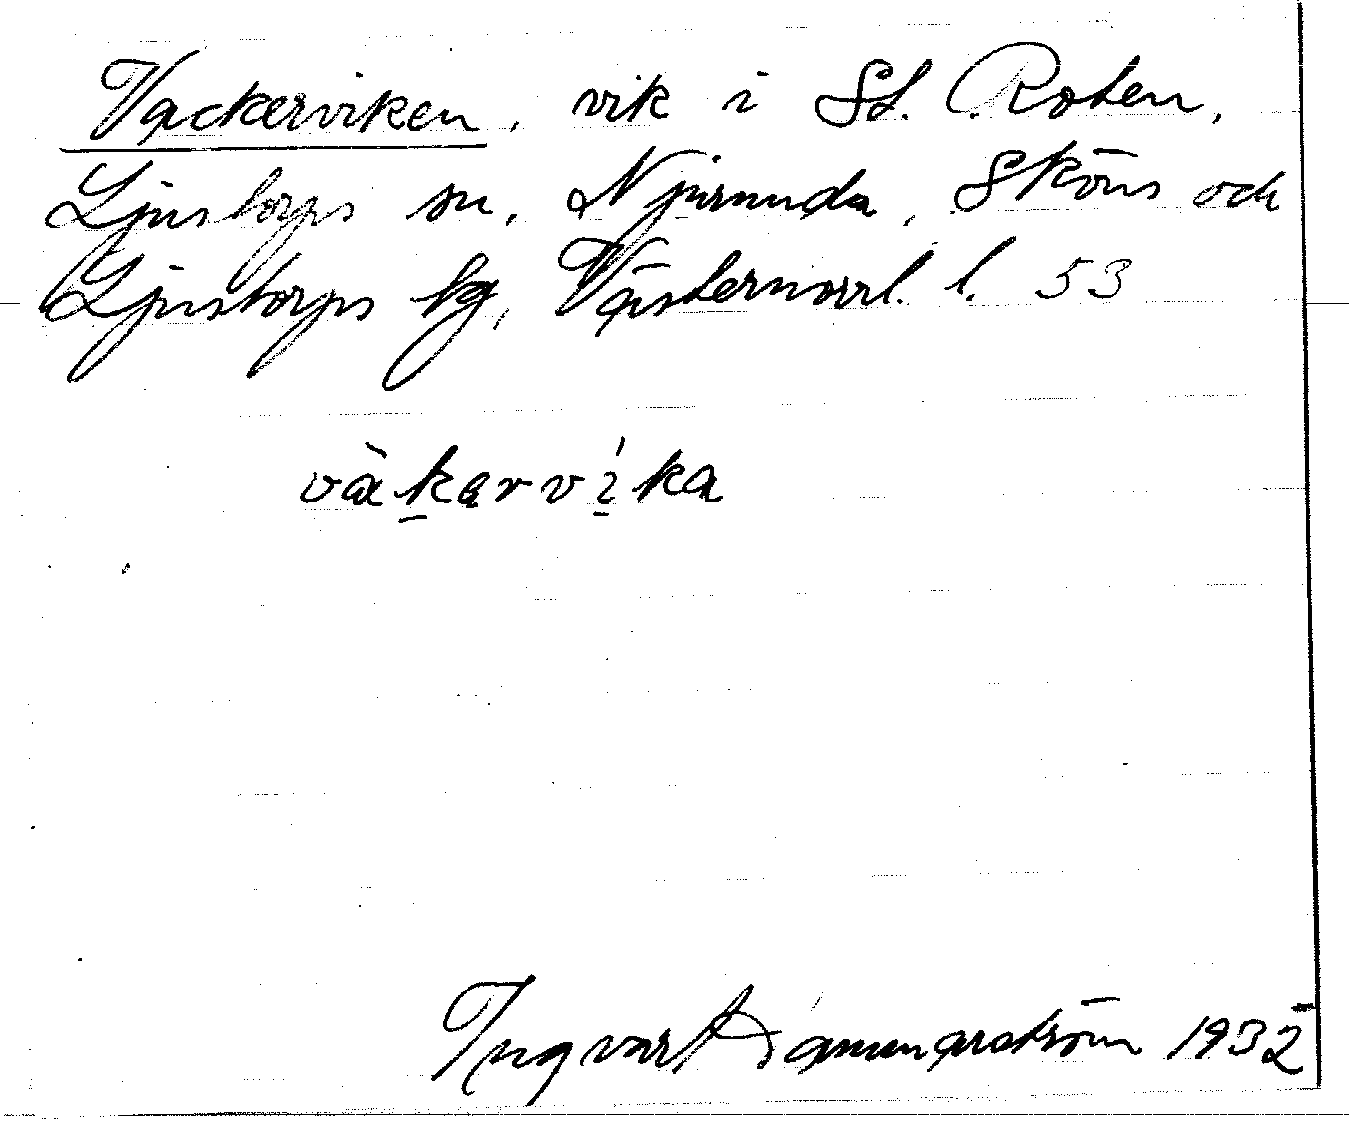 Vackerviken, vik i St. Roten,
Ljustorps sn, Njurunda, Sköns och
Ljustorps tg, Västernorrl. l. 53
vàkarvíka
Ingvar Hammarström 1932